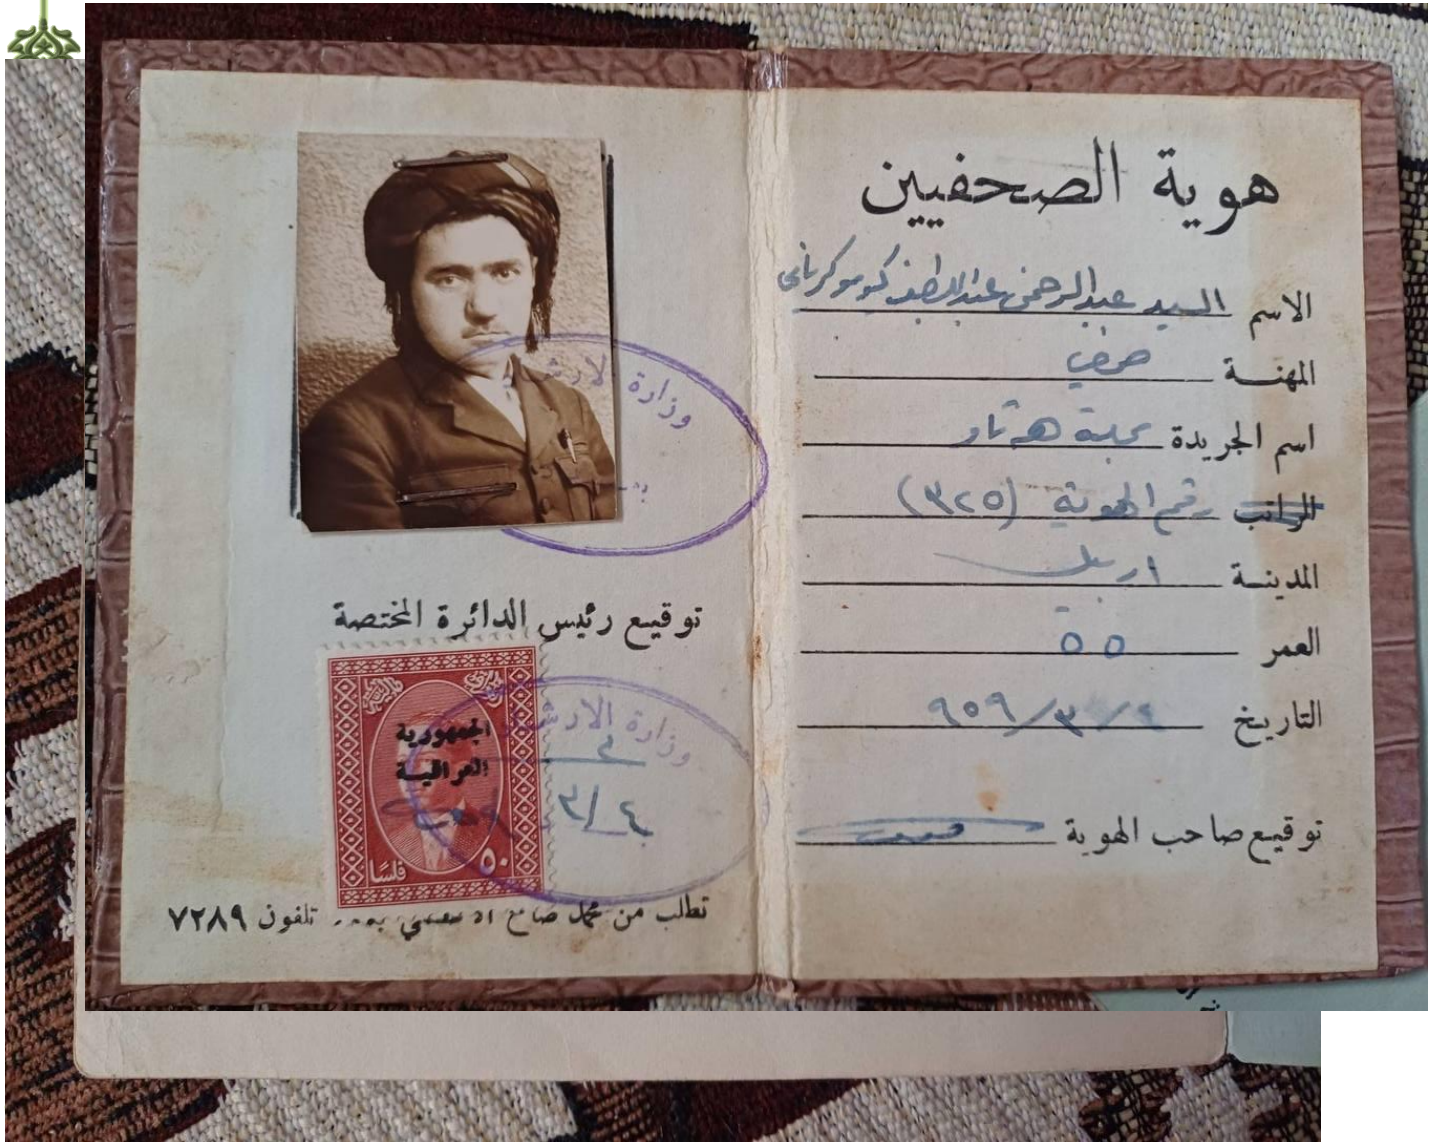 هوية الصحفيين
الاسم السيد عبدالرحمن عبداللطيف
المهنــة صحفي
اسم الجريدة مجلة هه تاو
الراتب رقم الهوية (٣٢٥)
المدينــة اربيل
العمر ٥٥
التاريـخ ٩٥٩/٣/
توقيـع صاحب الهوية
وزارة الارشاد
توقيـع رئيس الدائرة المختصة
الجمهورية
العراقيـة
٥٠
فلسًا
وزارة الارشاد
٤/٣
تطلب من محمد صالح تلفون ٧٢٨٩